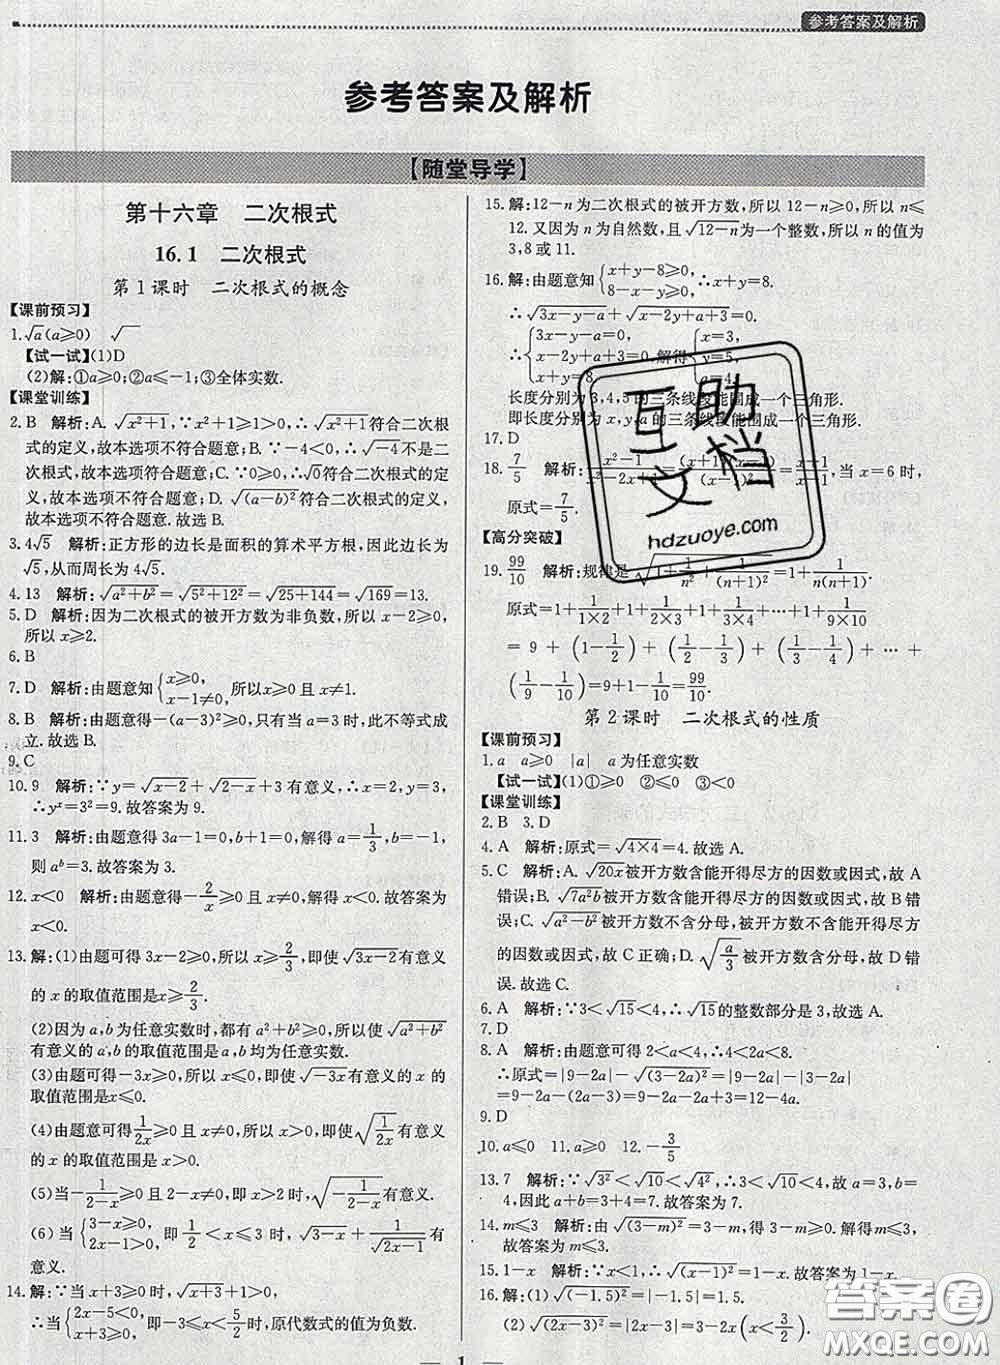 参考答案及解析
参考答案及解析
【随堂导学】
第十六章 二次根式
16.1 二次根式
第1课时 二次根式的概念
【课前预习】
1.√a(a≥0) √
【试一试】(1)D
(2)解:①a≥0;②a≤-1;③全体实数.
【课堂训练】
2.B 解析:A.√(x²+1),∵x²+1≥1>0,∴√(x²+1)符合二次根
式的定义,故本选项不符合题意;B.∵-4<0,∴√-4不是二
次根式,故本选项符合题意;C.∵0≥0,∴√0符合二次根式的定义,
故本选项不符合题意;D.√(a-b)²符合二次根式的定义,
故本选项不符合题意.故选B.
3.4√5 解析:正方形的边长是面积的算术平方根,因此边长为
√5,从而周长为4√5.
4.13 解析:√(a²+b²)=√(5²+12²)=√(25+144)=√169=13.
5.D 解析:因为二次根式的被开方数为非负数,所以x-2≥0,
所以x≥2.
6.B
7.D 解析:由题意知{x≥0, x-1≠0, 所以x≥0且x≠1.
8.B 解析:由题意得-(a-3)²≥0,只有当a=3时,此不等式成
立.故选B.
9.C
10.9 解析:∵y=√(x-2)+√(2-x)+3有意义,∴x=2,y=3,
∴yˣ=3²=9.故答案为9.
11.3 解析:由题意得3a-1=0,b+1=0,解得a=1/3,b=-1,
则aᵇ=3.故答案为3.
12.x<0 解析:由题意得-2/x≥0且x≠0,解得x<0.故答案为
x<0.
13.解:(1)由题意可得3x-2≥0,所以x≥2/3,即使√(3x-2)有意义
的x的取值范围是x≥2/3.
(2)因为a,b为任意实数时,都有a²+b²≥0,所以使√(a²+b²)
有意义的a,b的取值范围是a,b均为任意实数.
(3)由题意可得-3x≥0,所以x≤0,即使√(-3x)有意义的x的
取值范围是x≤0.
(4)由题意可得1/2x≥0且x≠0,所以x>0,即使√(1/2x)有意义
的x的取值范围是x>0.
(5)当-1/(2-x)≥0且2-x≠0,即x>2时,√(-1/(2-x))有意义.
(6)当{3-x≥0, 2x-1>0, 即1/2<x≤3时,√(3-x)+1/√(2x-1)有
意义.
14.解:∵当x+3≥0时,√(x+3)+1>0,
∴当{2x-5<0, x+3≥0, 即-3≤x<5/2时,原代数式的值为负数.
15.解:12-n为二次根式的被开方数,所以12-n≥0,所以n≤
12.又因为n为自然数,且√(12-n)为一个整数,所以n的值为
3,8或11.
16.解:由题意知{x+y-8≥0, 8-x-y≥0, ∴x+y=8.
∴√(3x-y-a)+√(x-2y+a+3)=0.
∴{3x-y-a=0, x-2y+a+3=0, x+y=8. 解得{x=3, y=5, a=4.
长度分别为3,4,5的三条线段能围成一个三角形.
即长度分别为x,y,a的三条线段能围成一个三角形.
17.D
18.7/5 解析:(x²-1)/(x²-2x+1)=(x+1)(x-1)/(x-1)²=(x+1)/(x-1),当x=6时,
原式=7/5.
【高分突破】
19.99/10 解析:规律是√(1+1/n²+1/(n+1)²)=1+1/n(n+1).
原式=1+1/(1×2)+1+1/(2×3)+1+1/(3×4)+…+1+1/(9×10)
=9+(1-1/2)+(1/2-1/3)+(1/3-1/4)+…+
(1/9-1/10)=9+1-1/10=99/10.
第2课时 二次根式的性质
【课前预习】
1.a a≥0 |a| a为任意实数
【试一试】(1)①≥0 ②≤0 ③<0
【课堂训练】
2.B 3.D
4.A 解析:原式=√(4×4)=4.故选A.
5.C 解析:A.√20x被开方数含能开得尽方的因数或因式,故A
错误;B.√7a²b被开方数含能开得尽方的因数或因式,故B错
误;C.√(a²-b²)被开方数不含分母,被开方数不含能开得尽方
的因数或因式,故C正确;D.√(a/3)被开方数含分母,故D错
误.故选C.
6.A 解析:∵3<√15<4,∴√15的整数部分是3,故选A.
7.D
8.A 解析:由题意可得2<a<4,∴4<2a<8.
∴原式=|9-2a|-√(3-2a)²=|9-2a|-|3-2a|=
9-2a-(2a-3)=9-2a-2a+3=12-4a.
9.D
10.a≤0 11.a≥0 12.-3/5
13.7 解析:∵√3²<√10<√4²,∴3<√10<4,∴a=3,b=
4,因此a+b=3+4=7.故答案为7.
14.m≤3 解析:由√(3-m)²=3-m,得3-m≥0.解得m≤3.
故答案为m≤3.
15.1-x 解析:∵x≤1,∴√(x-1)²=1-x.故答案为1-x.
16.解:(1)√(-1.5)²=|-1.5|=1.5.
(2)√(2x-3)²=|2x-3|=3-2x(x<3/2).
1
互助文档
hdzuoye.com
答案圈
MXQE.COM